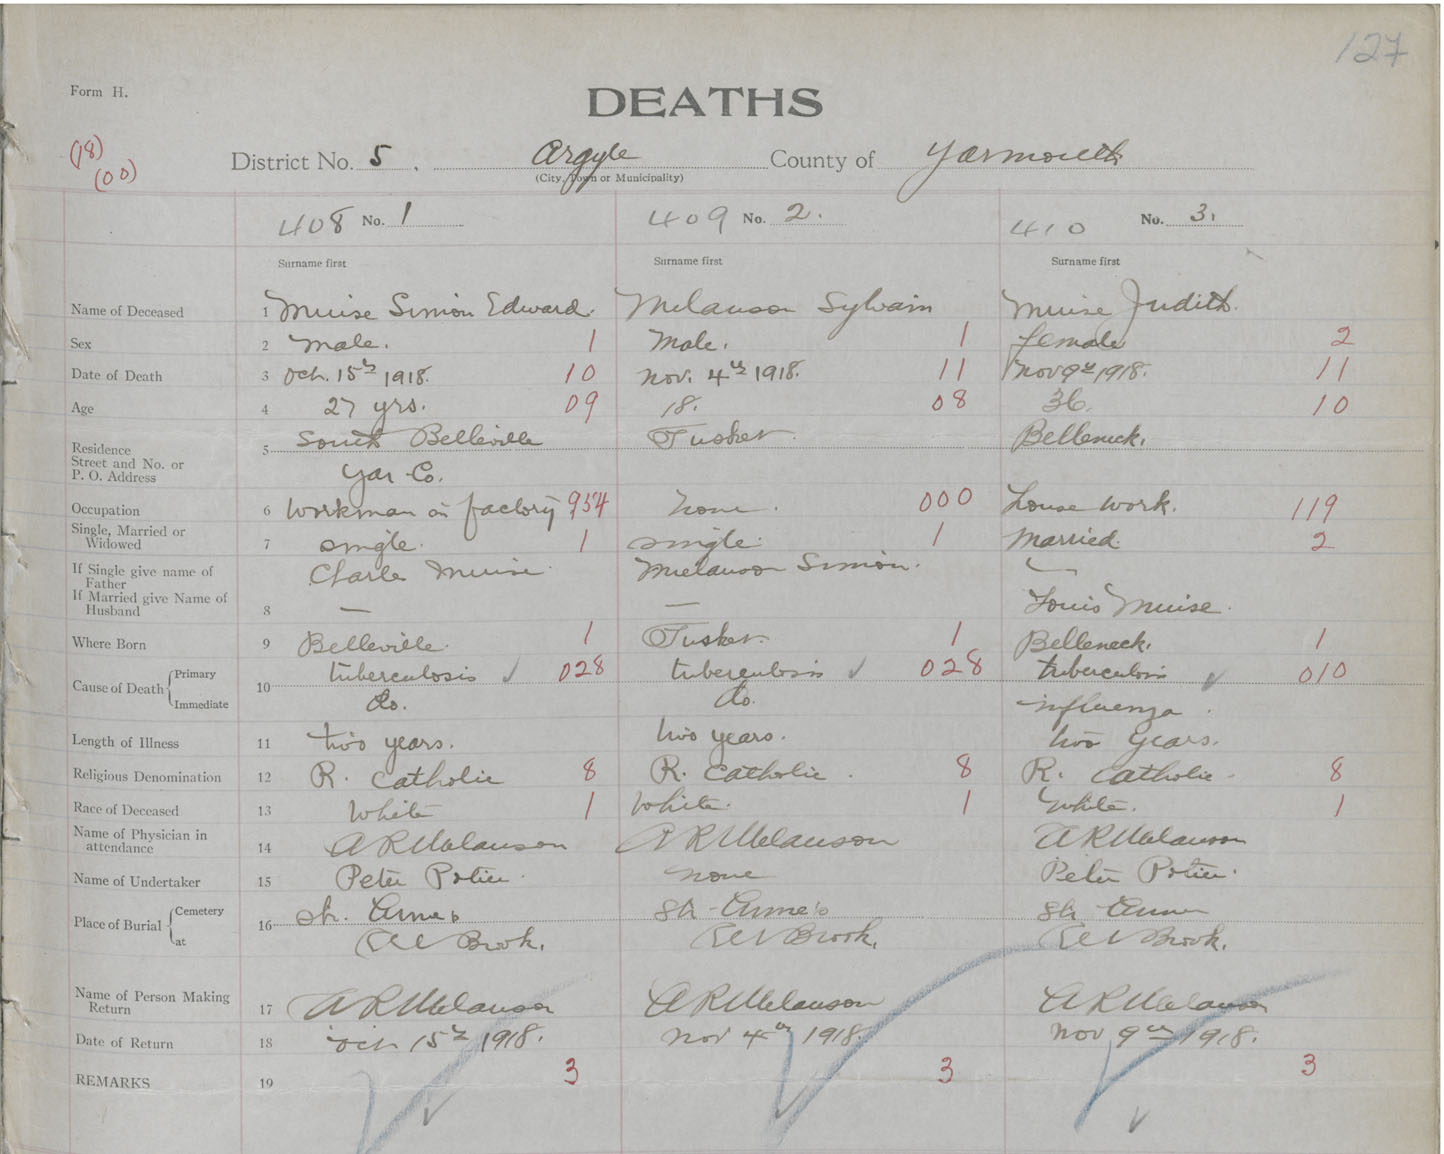 127
Form H.
DEATHS
(18)
(00)
District No. 5, Argyle County of Yarmouth
(City, Town or Municipality)
408 No. 1 409 No. 2. 410 No. 3.
Surname first Surname first Surname first
Name of Deceased 1 Muise Simon Edward. Melanson Sylvain Muise Judith.
Sex 2 Male. 1 Male. 1 female 2
Date of Death 3 Oct. 15th 1918. 10 Nov. 4th 1918. 11 Nov 9th 1918. 11
Age 4 27 yrs. 09 18. 08 36. 10
Residence
Street and No. or
P. O. Address
5 South Belleville Tusket. Belleneck.
Yar Co.
Occupation 6 Workman in factory 954 none. 000 House work. 119
Single, Married or
Widowed 7 single. 1 single. 1 Married. 2
If Single give name of
Father Charles Muise. Melanson Simon. —
If Married give Name of
Husband 8 — — Louis Muise.
Where Born 9 Belleville. 1 Tusket. 1 Belleneck. 1
Cause of Death Primary 10 tuberculosis ✓ 028 tuberculosis ✓ 028 tuberculosis ✓ 010
Immediate Do. Do. influenza.
Length of Illness 11 two years. two years. two years.
Religious Denomination 12 R. Catholic 8 R. Catholic. 8 R. Catholic. 8
Race of Deceased 13 White 1 White. 1 White. 1
Name of Physician in
attendance 14 A R Melanson A R Melanson A R Melanson
Name of Undertaker 15 Peter Potier. none Peter Potier.
Place of Burial Cemetery 16 St. Anne's St. Anne's St. Anne
at Brook. Brook. Brook.
Name of Person Making
Return 17 A R Melanson A R Melanson A R Melanson
Date of Return 18 Oct 15th 1918. Nov 4th 1918. Nov 9th 1918.
REMARKS 19 3 3 3